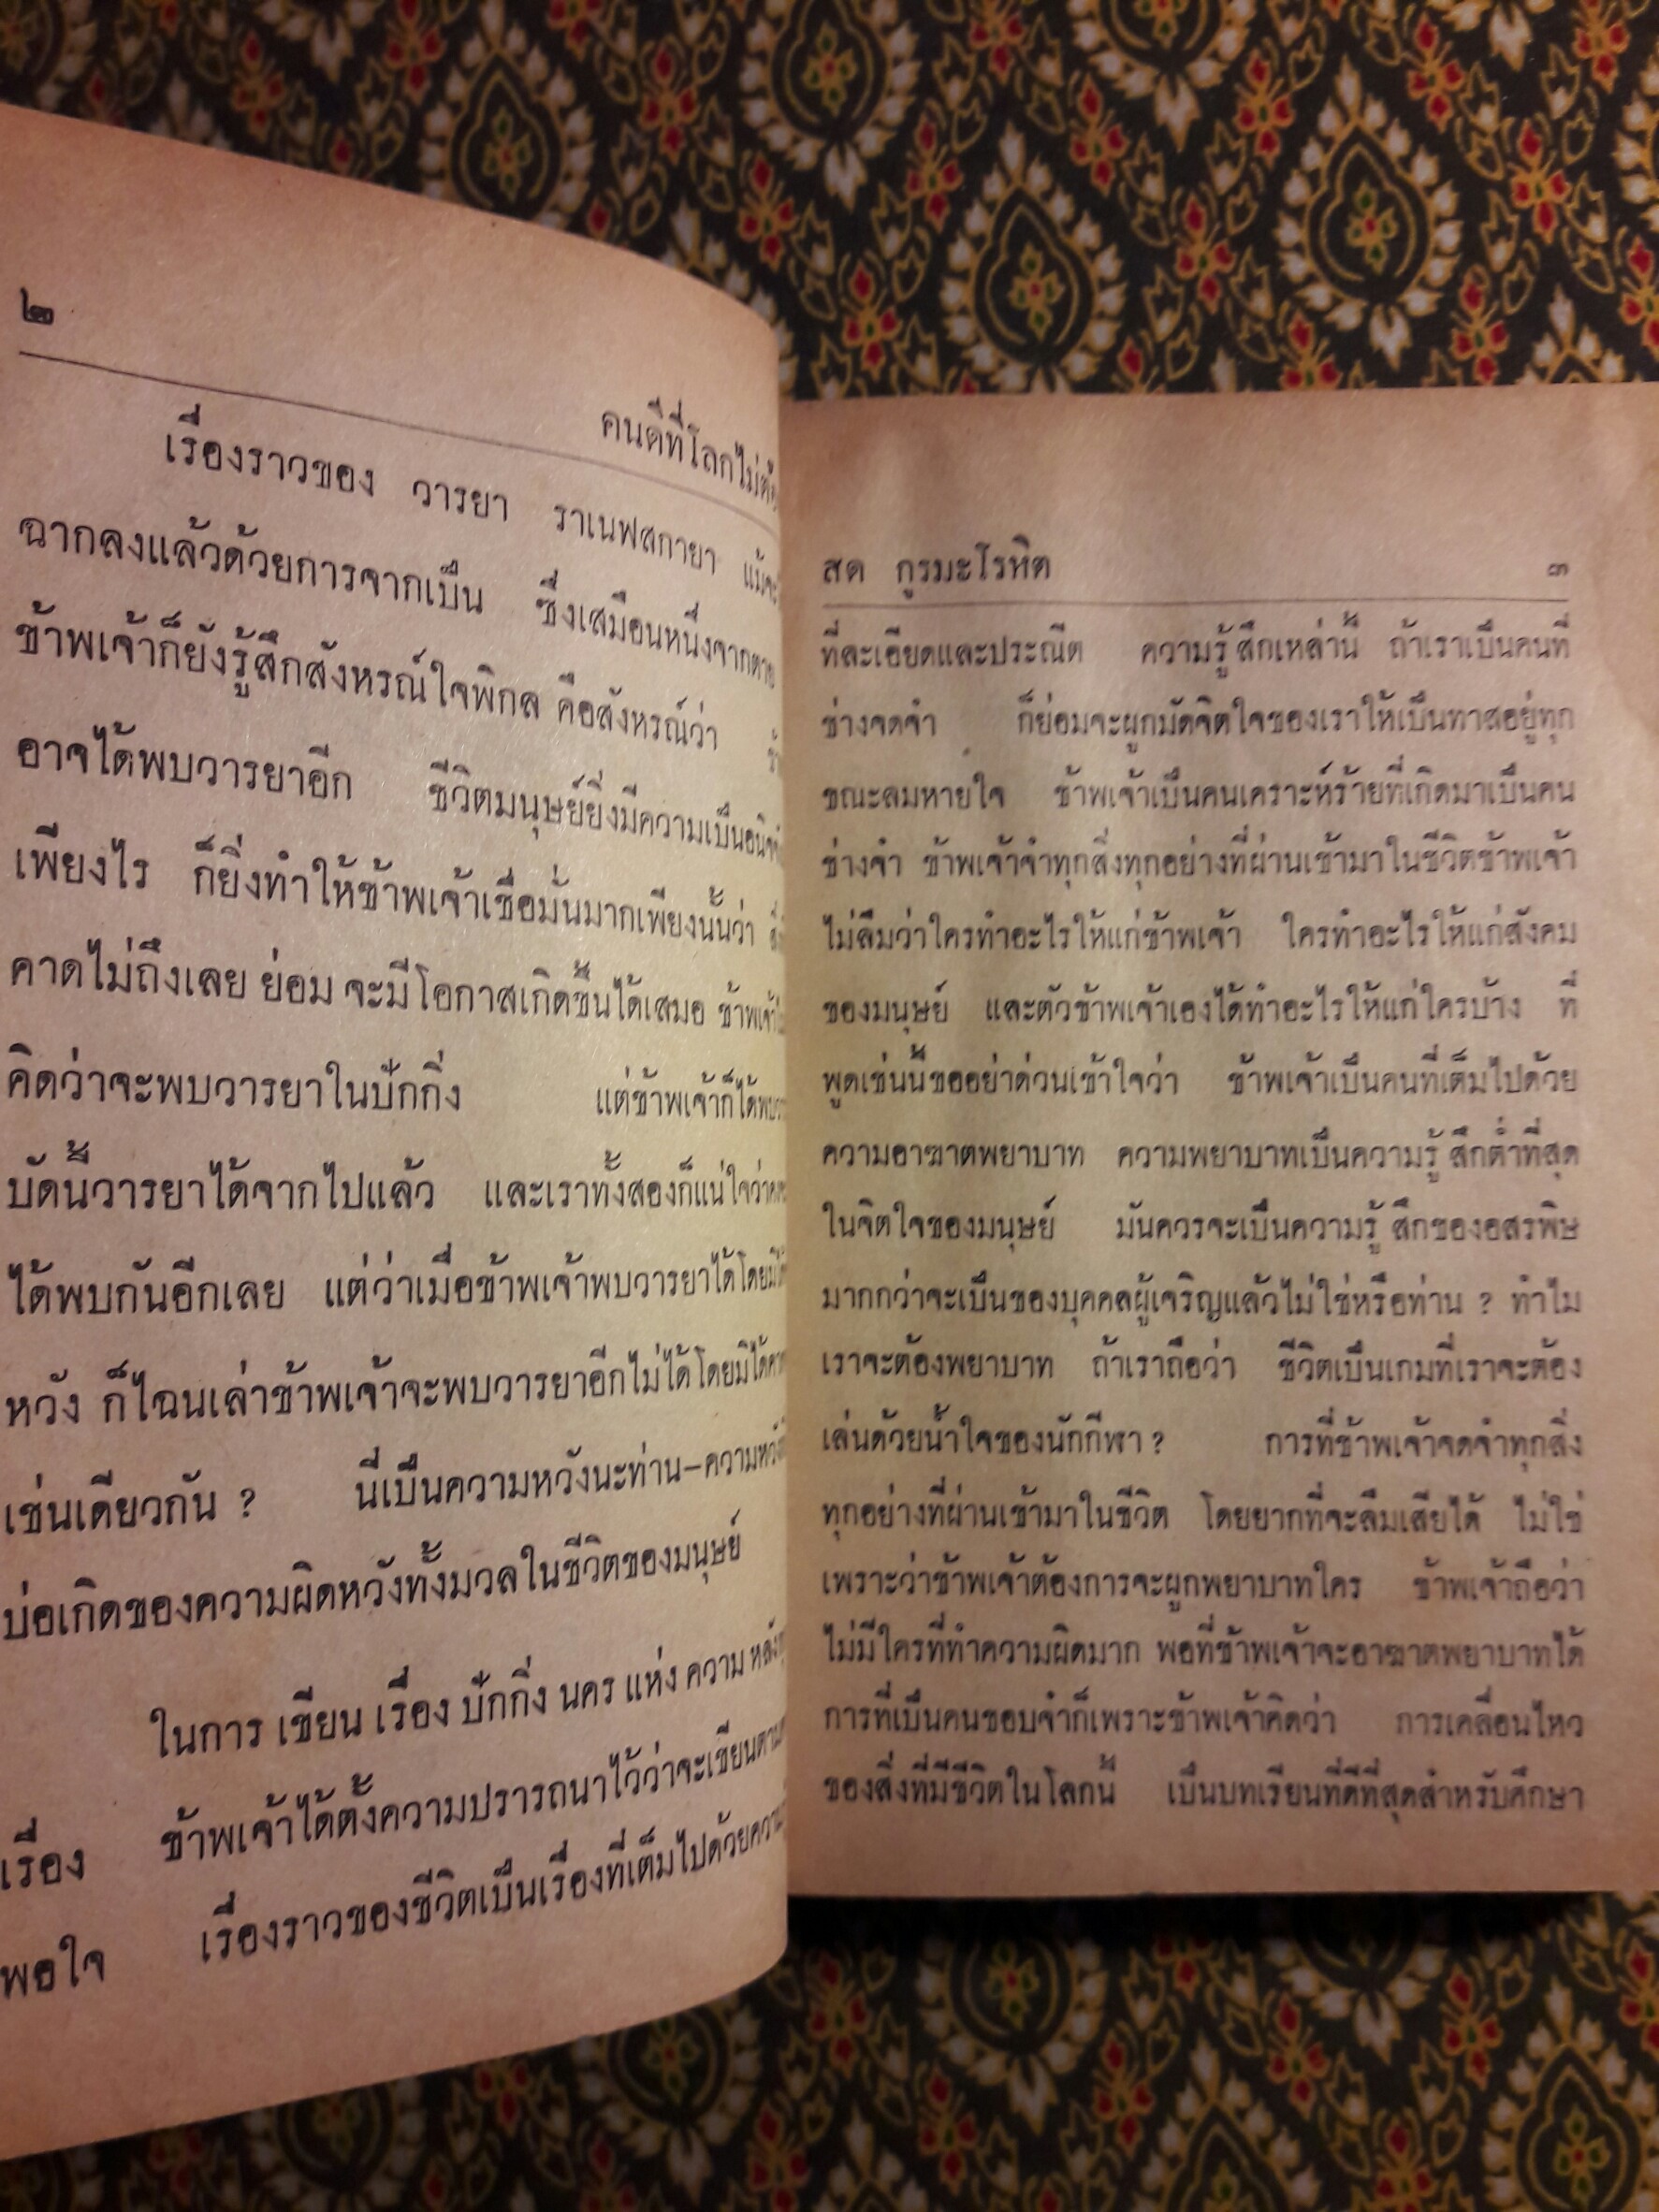 ๒
คนดีที่โลกไม่
เรื่องราวของ วารยา ราเนฟสกายา แม้จะ
ฉากลงแล้วด้วยการจากเป็น ซึ่งเสมือนหนึ่งจากตาย
ข้าพเจ้าก็ยังรู้สึกสังหรณ์ใจพิกล คือสังหรณ์ว่า
อาจได้พบวารยาอีก ชีวิตมนุษย์ยิ่งมีความเป็น
เพียงไร ก็ยิ่งทำให้ข้าพเจ้าเชื่อมั่นมากเพียงนั้นว่า
คาดไม่ถึงเลย ย่อม จะมีโอกาสเกิดขึ้นได้เสมอ ข้าพเจ้า
คิดว่าจะพบวารยาในปักกิ่ง แต่ข้าพเจ้าก็ได้
บัดนี้วารยาได้จากไปแล้ว และเราทั้งสองก็แน่ใจว่า
ได้พบกันอีกเลย แต่ว่าเมื่อข้าพเจ้าพบวารยาได้โดย
หวัง ก็ไฉนเล่าข้าพเจ้าจะพบวารยาอีกไม่ได้โดยมิได้
เช่นเดียวกัน ? นี่เป็นความหวังนะท่าน–ความหวัง
บ่อเกิดของความผิดหวังทั้งมวลในชีวิตของมนุษย์
ในการ เขียน เรื่อง ปักกิ่ง นคร แห่ง ความ หลัง
เรื่อง ข้าพเจ้าได้ตั้งความปรารถนาไว้ว่าจะเขียนตาม
พอใจ เรื่องราวของชีวิตเป็นเรื่องที่เต็มไปด้วย
สด กูรมะโรหิต ๓
ที่ละเอียดและประณีต ความรู้สึกเหล่านี้ ถ้าเราเป็นคนที่
ช่างจดจำ ก็ย่อมจะผูกมัดจิตใจของเราให้เป็นทาสอยู่ทุก
ขณะลมหายใจ ข้าพเจ้าเป็นคนเคราะห์ร้ายที่เกิดมาเป็นคน
ช่างจำ ข้าพเจ้าจำทุกสิ่งทุกอย่างที่ผ่านเข้ามาในชีวิตข้าพเจ้า
ไม่ลืมว่าใครทำอะไรให้แก่ข้าพเจ้า ใครทำอะไรให้แก่สังคม
ของมนุษย์ และตัวข้าพเจ้าเองได้ทำอะไรให้แก่ใครบ้าง ที่
พูดเช่นนี้ขออย่าด่วนเข้าใจว่า ข้าพเจ้าเป็นคนที่เต็มไปด้วย
ความอาฆาตพยาบาท ความพยาบาทเป็นความรู้สึกต่ำที่สุด
ในจิตใจของมนุษย์ มันควรจะเป็นความรู้สึกของอสรพิษ
มากกว่าจะเป็นของบุคคลผู้เจริญแล้วไม่ใช่หรือท่าน ? ทำไม
เราจะต้องพยาบาท ถ้าเราถือว่า ชีวิตเป็นเกมที่เราจะต้อง
เล่นด้วยน้ำใจของนักกีฬา ? การที่ข้าพเจ้าจดจำทุกสิ่ง
ทุกอย่างที่ผ่านเข้ามาในชีวิต โดยยากที่จะลืมเสียได้ ไม่ใช่
เพราะว่าข้าพเจ้าต้องการจะผูกพยาบาทใคร ข้าพเจ้าถือว่า
ไม่มีใครที่ทำความผิดมาก พอที่ข้าพเจ้าจะอาฆาตพยาบาทได้
การที่เป็นคนชอบจำก็เพราะข้าพเจ้าคิดว่า การเคลื่อนไหว
ของสิ่งที่มีชีวิตในโลกนี้ เป็นบทเรียนที่ดีที่สุดสำหรับศึกษา